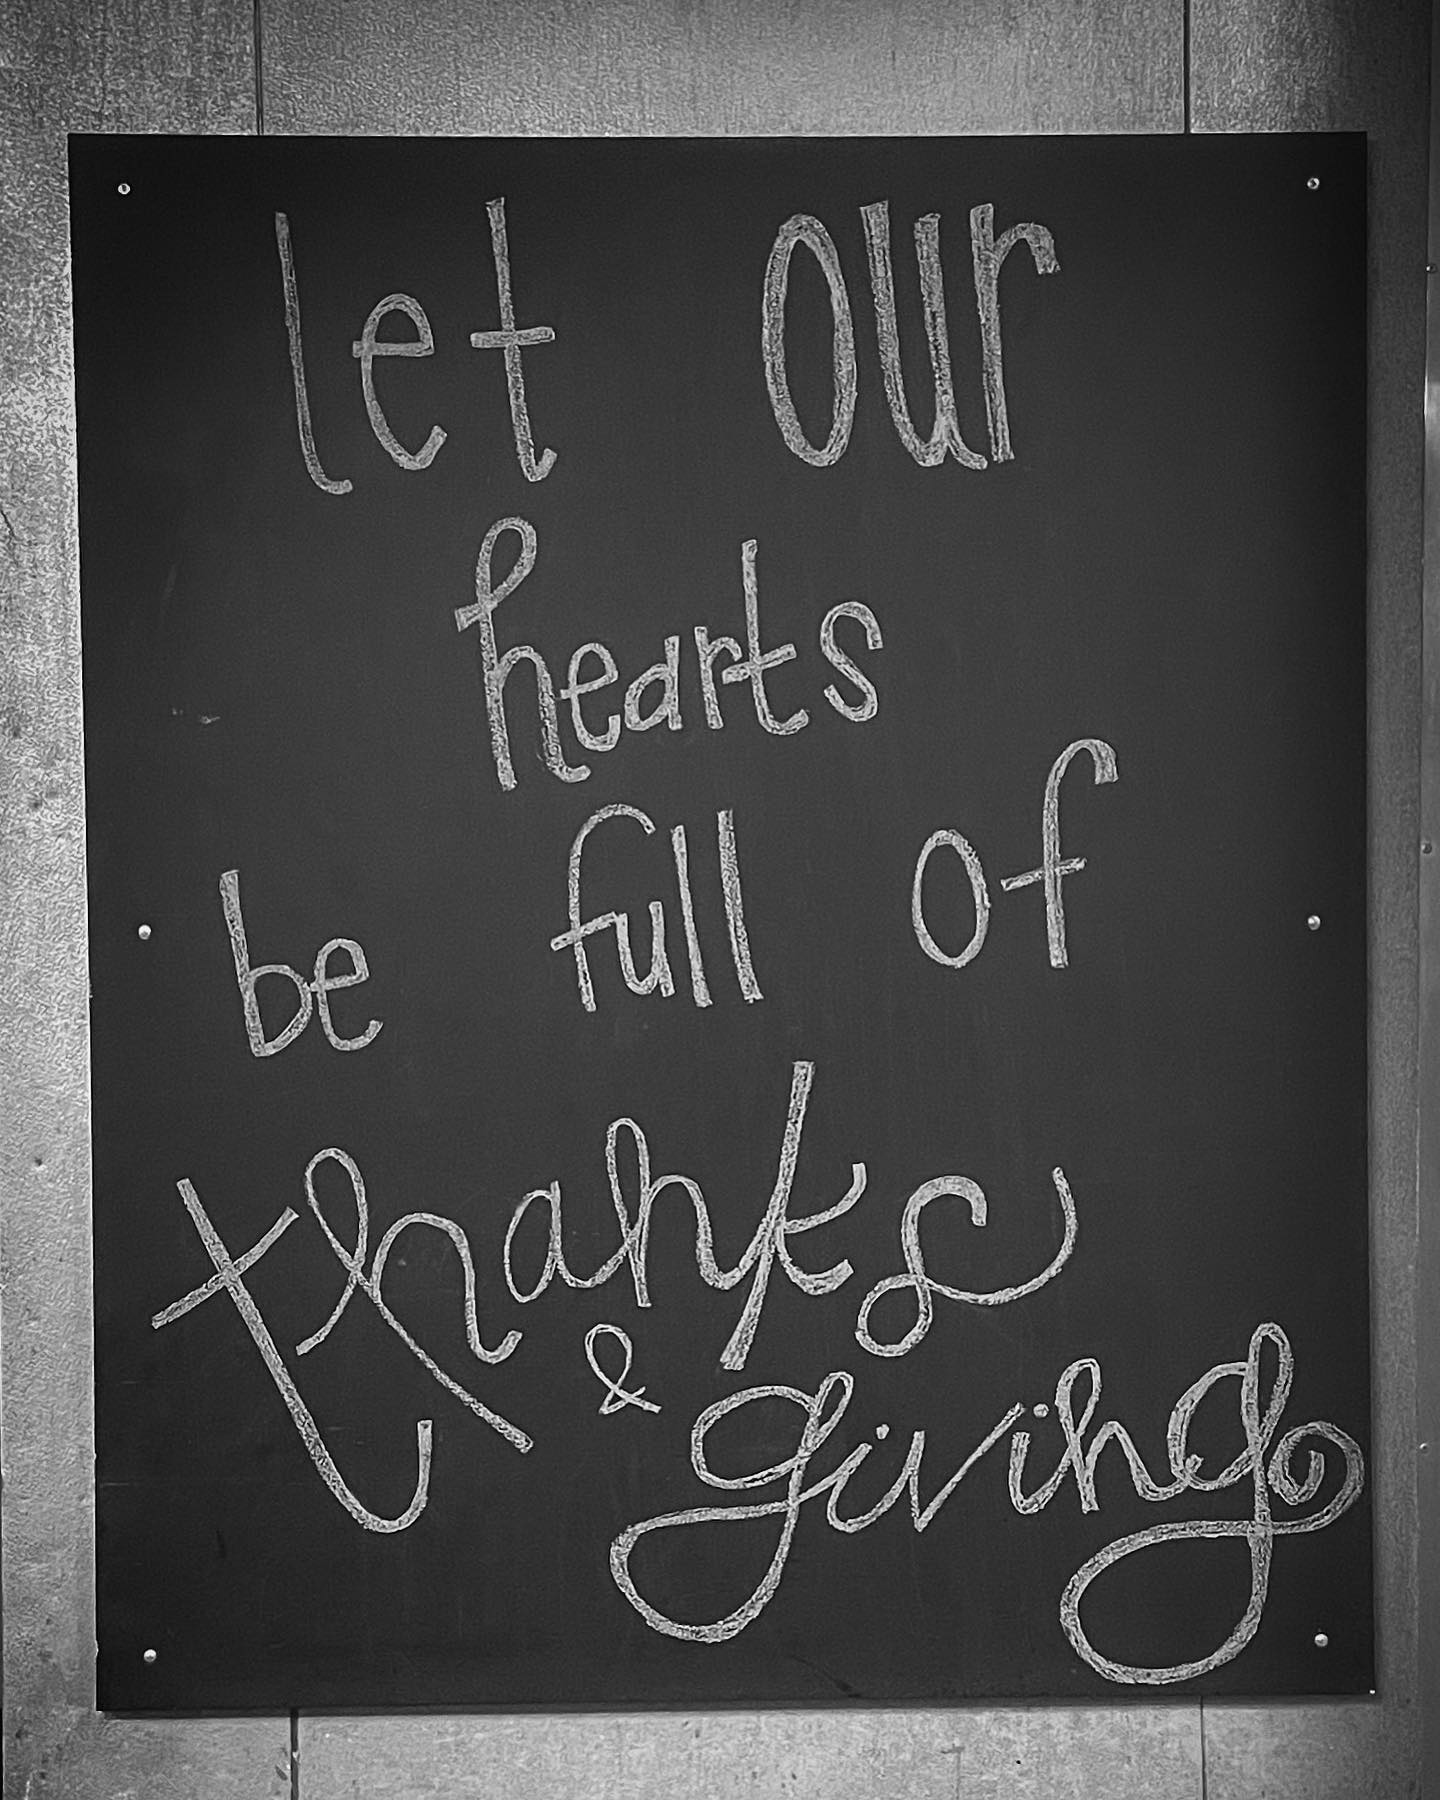 let our
hearts
be full of
thanks
&
giving